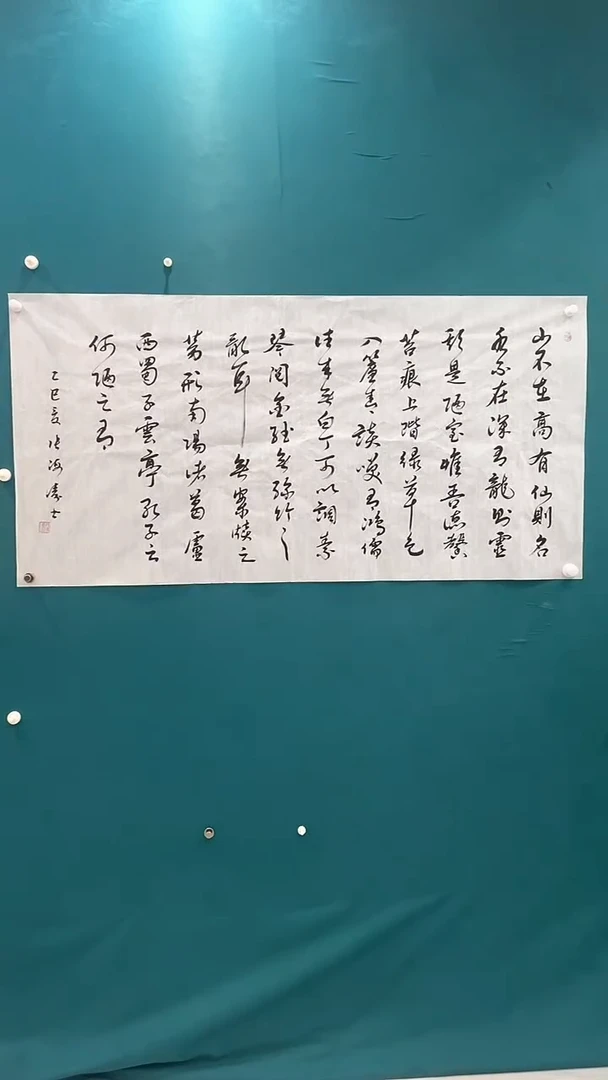 山不在高有仙則名
水不在深有龍則靈
斯是陋室惟吾德馨
苔痕上階綠草色
入簾青談笑有鴻儒
往來無白丁可以調素
琴閱金經無絲竹之
亂耳無案牘之
勞形南陽諸葛廬
西蜀子雲亭孔子云
何陋之有
乙巳夏